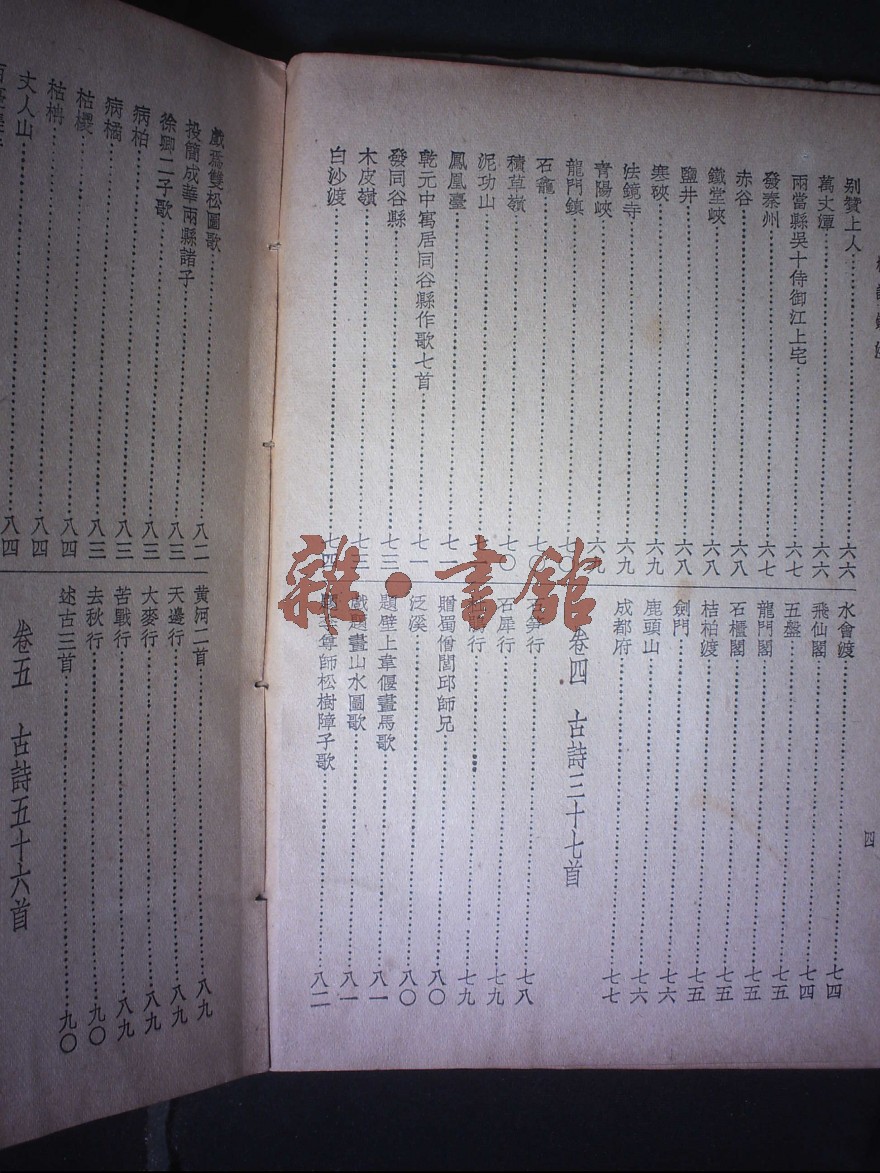 四
別贊上人 六六
萬丈潭 六六
兩當縣吳十侍御江上宅 六七
發秦州 六七
赤谷 六八
鐵堂峽 六八
鹽井 六八
寒硤 六九
法鏡寺 六九
青陽峽 六九
龍門鎮 七〇
石龕 七〇
積草嶺 七〇
泥功山
鳳凰臺 七一
乾元中寓居同谷縣作歌七首 七一
發同谷縣 七三
木皮嶺 七三
白沙渡 七四
水會渡 七四
飛仙閣 七四
五盤 七五
龍門閣 七五
石櫃閣 七五
桔柏渡 七五
劍門 七六
鹿頭山 七六
成都府 七七
卷四 古詩三十七首
石笋行 七八
石犀行 七九
行 七九
贈蜀僧閭邱師兄 八〇
泛溪 八〇
題壁上韋偃畫馬歌 八一
戲題畫山水圖歌 八一
尊師松樹障子歌 八二
戲為雙松圖歌 八二
投簡成華兩縣諸子 八三
徐卿二子歌 八三
病柏 八三
病橘 八三
枯椶 八四
枯柟 八四
丈人山 八四
黃河二首 八九
天邊行 八九
大麥行 八九
苦戰行 八九
去秋行 九〇
述古三首 九〇
卷五 古詩五十六首
雜·書館